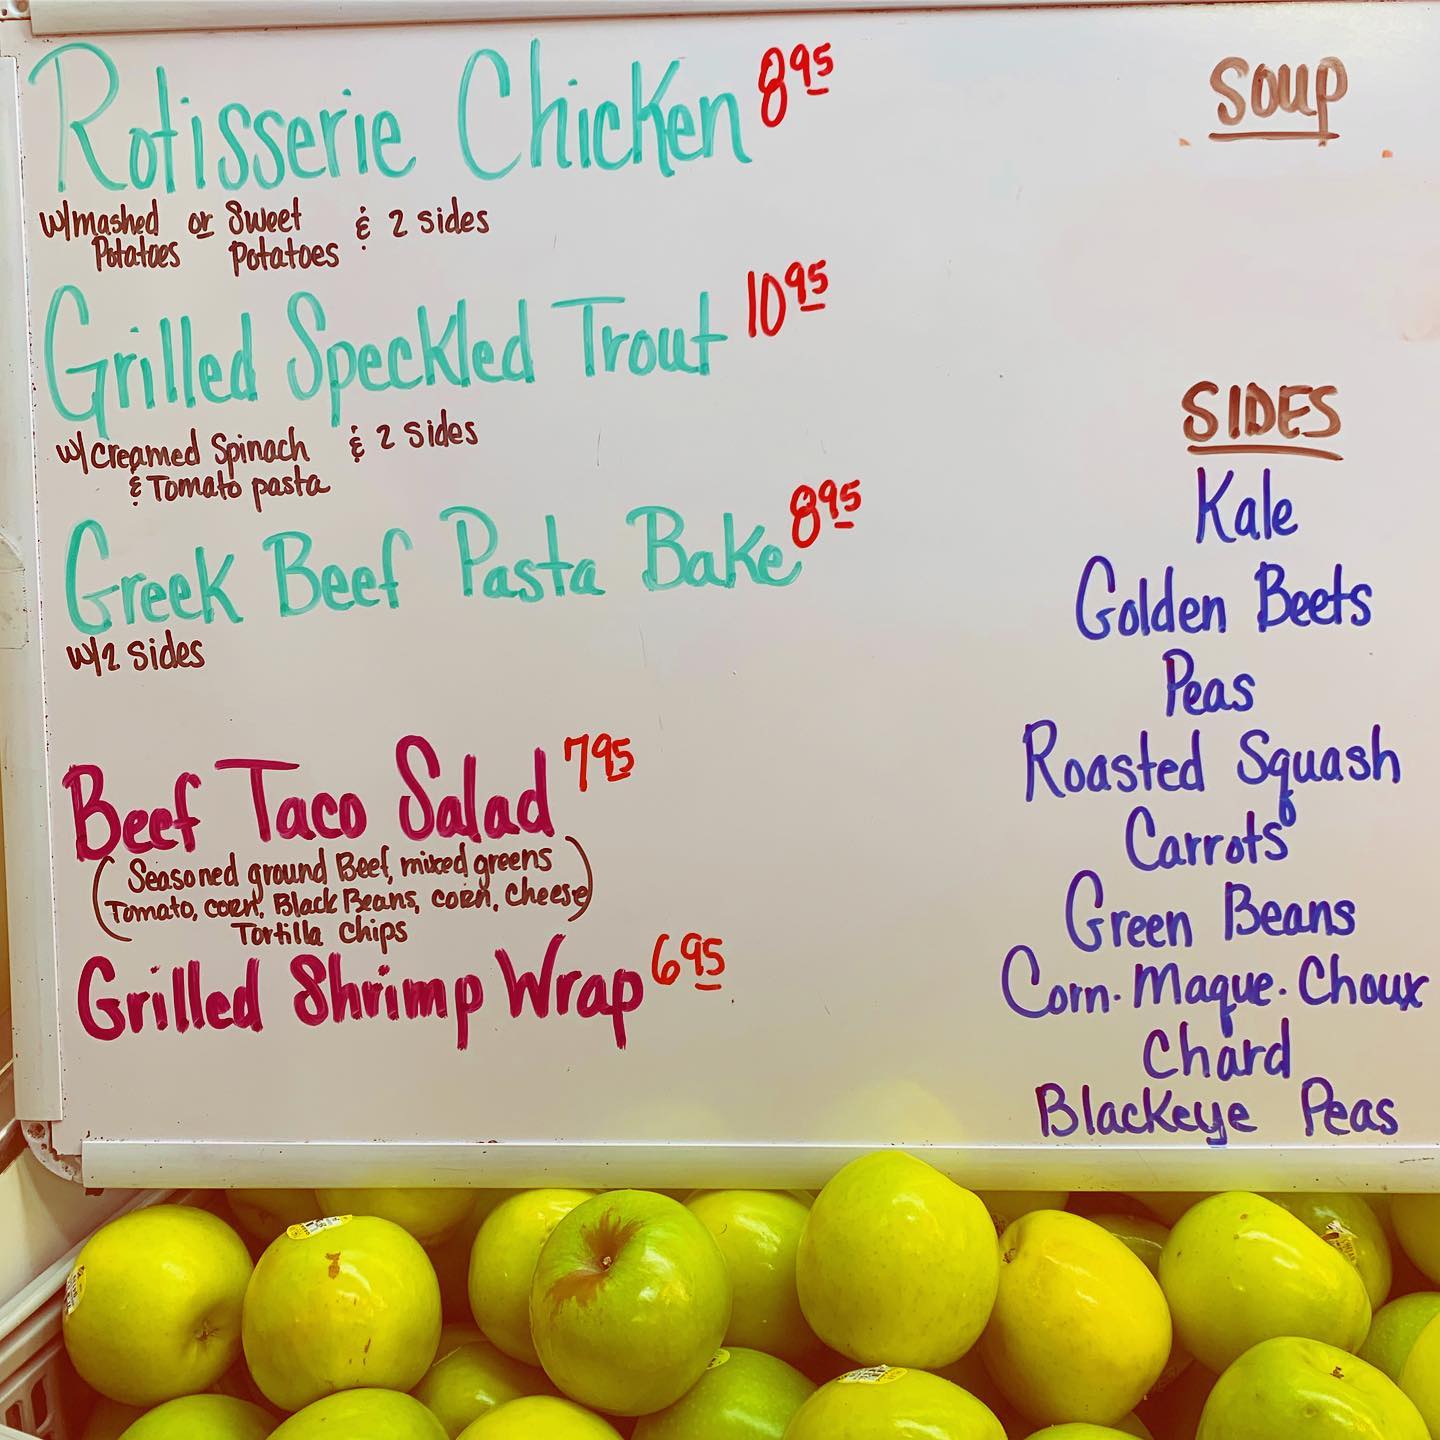 Rotisserie Chicken 8.95
w/mashed or Sweet & 2 sides
Potatoes Potatoes
Grilled Speckled Trout 10.95
w/creamed Spinach & 2 sides
& Tomato pasta
Greek Beef Pasta Bake 8.95
w/2 sides
Beef Taco Salad 7.95
(Seasoned ground Beef, mixed greens
Tomato, corn, Black Beans, corn, cheese)
Tortilla chips
Grilled Shrimp Wrap 6.95
Soup
SIDES
Kale
Golden Beets
Peas
Roasted Squash
Carrots
Green Beans
Corn·Maque·Choux
Chard
Blackeye Peas